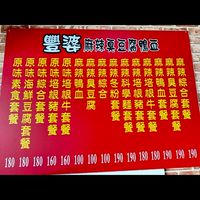 麻辣臭豆腐鴨血
麻辣綜合套餐 190
麻辣培根牛套餐 190
麻辣培根豬套餐
麻辣臭豆腐套餐 190
麻辣科學麵套餐 190
麻辣冬粉套餐 190
麻辣臭豆腐 100
麻辣鴨血 100
原味培根牛套餐 160
原味培根豬套餐 160
原味綜合套餐 180
原味海鮮豆腐套餐 180
原味素食套餐 180